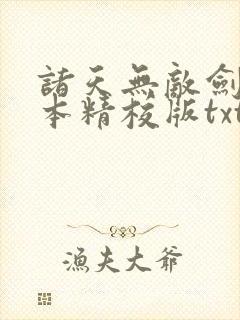 諸天無敵劍
本精校版txt
漁夫大爺